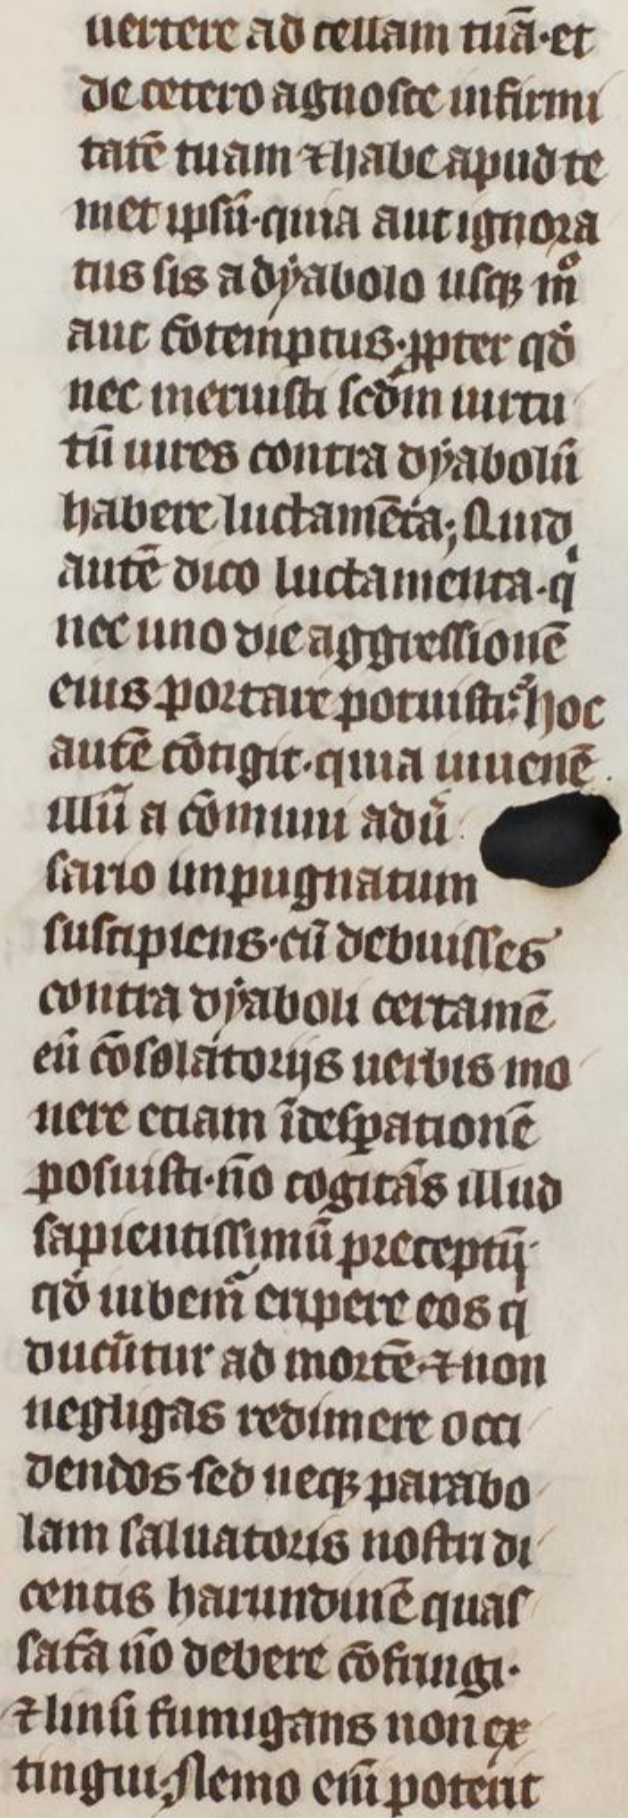 uertere ad cellam tuā·et
de cetero agnosce infirmi
tatē tuam ⁊ habe apud te
met ipsū·quia aut ignora
tus sis a dyabolo usqꝫ mͦ
aut ɔ̄temptus·ꝓpter qđ
nec meruisti scđm uirtu
tū uires contra dyabolū
habere luctamēta; Quid
autē dico luctamenta·qͥ
nec uno die aggressionē
eius portare potuisti; hoc
autē ɔ̄tigit·quia iuuenē
illū a ɔ̄muni adū
sario inpugnatum
suscipiens·cū debuisses
contra dyaboli certamē
eū ɔ̄solatorijs uerbis mo
nere etiam īdesꝑationē
posuisti·nō cogitās illud
sapientissimū preceptū
qđ iubem̄ eripere eos q
ducūtur ad mortē·⁊ non
negligas redimere occi
dendos sed neqꝫ parabo
lam saluatoris nostri di
centis harundinē quas
satā nō debere ɔ̄fringi·
⁊ linū fumigans non ex
tingui; Nemo eni̅ poterit